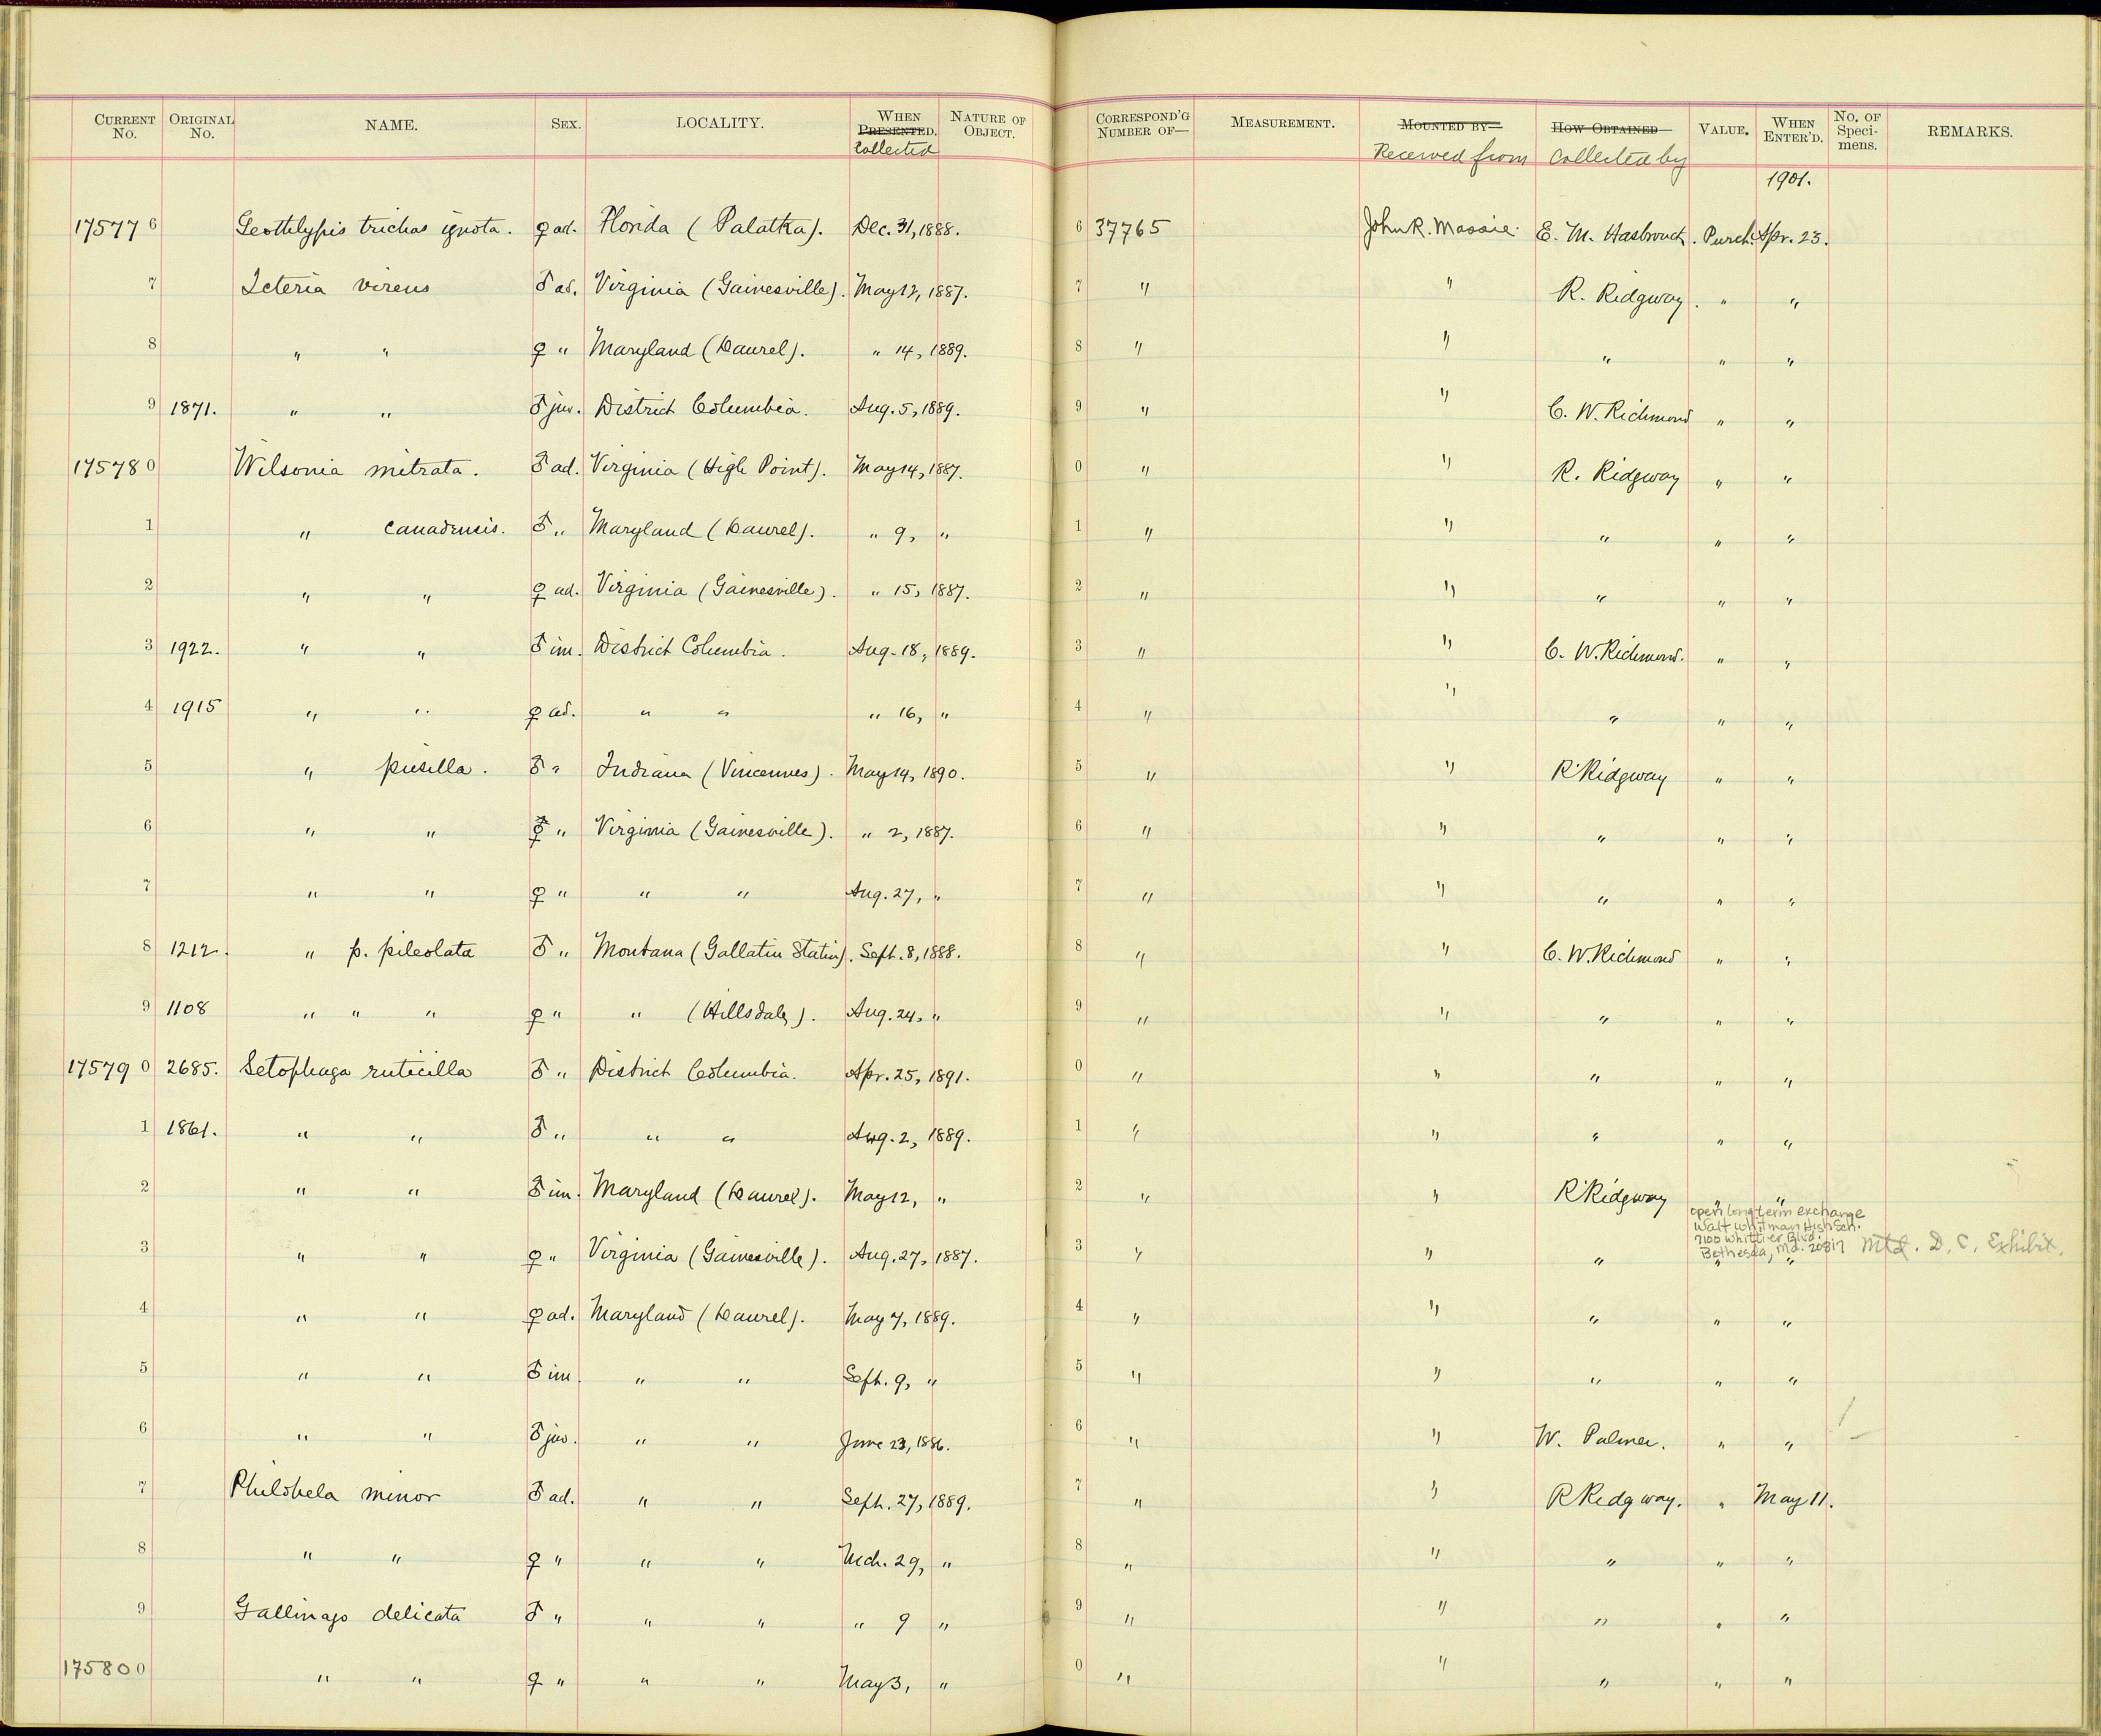 CURRENT No. ORIGINAL No. NAME. SEX. LOCALITY. WHEN PRESENTED. Collected NATURE OF OBJECT. CORRESPOND'G NUMBER OF— MEASUREMENT. MOUNTED BY— Received from HOW OBTAINED Collected by VALUE. WHEN ENTER'D. No. OF Speci-mens. REMARKS.
1901.
175776 Geothlypis trichas ignota. ♀ ad. Florida (Palatka). Dec. 31, 1888. 6 37765 John R. Massie. E. M. Hasbrouck. Purch. Apr. 23.
7 Icteria virens ♂ ad. Virginia (Gainesville). May 12, 1887. 7 " " R. Ridgway. " "
8 " " ♀ " Maryland (Laurel). " 14, 1889. 8 " " " " "
9 1871. " " ♂ juv. District Columbia. Aug. 5, 1889. 9 " " C. W. Richmond " "
175780 Wilsonia mitrata. ♂ ad. Virginia (High Point). May 14, 1887. 0 " " R. Ridgway " "
1 " canadensis. ♂ " Maryland (Laurel). " 9, " 1 " " " " "
2 " " ♀ ad. Virginia (Gainesville). " 15, 1887. 2 " " " " "
3 1922. " " ♂ im. District Columbia. Aug. 18, 1889. 3 " " C. W. Richmond. " "
4 1915 " " ♀ ad. " " " 16, " 4 " " " " "
5 " pusilla. ♂ " Indiana (Vincennes). May 14, 1890. 5 " " R Ridgway " "
6 " " " Virginia (Gainesville). " 2, 1887. 6 " " " " "
7 " " ♀ " " " Aug. 27, " 7 " " " " "
8 1212. " p. pileolata ♂ " Montana (Gallatin Station). Sept. 8, 1888. 8 " " C. W. Richmond " "
9 1108 " " " ♀ " " (Hillsdale). Aug. 24, " 9 " " " " "
175790 2685. Setophaga ruticilla ♂ " District Columbia. Apr. 25, 1891. 0 " " " " "
1 1861. " " ♂ " " " Aug. 2, 1889. 1 " " " " "
2 " " ♂ im. Maryland (Laurel). May 12, " 2 " " R Ridgway " "
open long term exchange
Walt Whitman High Sch.
7100 Whittier Blvd.
Bethesda, Md. 20817 Mtd. D. C. Exhibit.
3 " " ♀ " Virginia (Gainesville). Aug. 27, 1887. 3 " " " " "
4 " " ♀ ad. Maryland (Laurel). May 7, 1889. 4 " " " " "
5 " " ♂ im. " " Sept. 9, " 5 " " " " "
6 " " ♂ juv. " " June 23, 1886. 6 " " W. Palmer. " "
7 Philohela minor ♂ ad. " " Sept. 27, 1889. 7 " " R Ridgway. " May 11.
8 " " ♀ " " " Mch. 29, " 8 " " " " "
9 Gallinago delicata ♂ " " " " 9 " 9 " " " " "
175800 " " ♀ " " " May 3, " 0 " " " " "